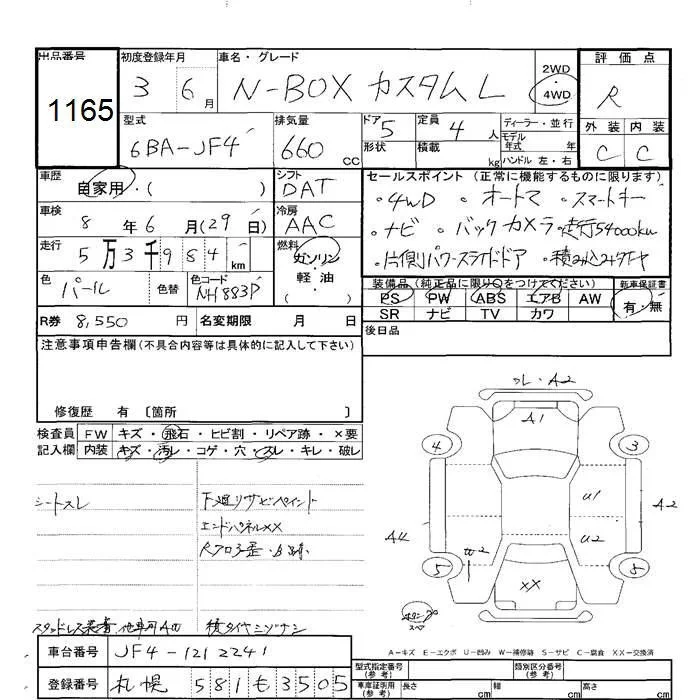 出品番号 1165
初度登録年月 3 6月
車名・グレード N-BOX カスタム L
2WD
・
4WD
評価点 R
外装 内装
C C
型式 6BA-JF4
排気量 660 CC
ドア 5
形状
定員 4人
積載 kg
ディーラー・並行
モデル年式 年式
ハンドル 左・右
車歴 自家用・( )
シフト DAT
セールスポイント (正常に機能するものに限ります)
・4WD ・オートマ ・スマートキー
・ナビ ・バックカメラ ・走行54000km
・片側パワースライドドア ・積み込みタイヤ
車検 8年6月(29日)
冷房 AAC
走行 5万3千984 km
燃料 ガソリン・軽油
( )
色 パール 色替
色コード NH883P
装備品 (純正品に限り○をつけてください)
PS PW ABS エアB AW
SR ナビ TV カワ
新車保証書
有・無
R券 8,550円 名変期限 月 日
後日品
注意事項申告欄(不具合内容等は具体的に記入して下さい)
修復歴 有 〔箇所 〕
検査員 FW キズ・飛石・ヒビ割・リペア跡・×要
記入欄 内装 キズ・汚レ・コゲ・穴・スレ・キレ・破レ
シートスレ
下廻りサビペイント
エンドパネルXX
Rフロア歪・
積タイヤミゾナシ
フレ・A2
A1
4 3
U1
A2
U2
5 5
XX
スペ
A-キズ E-エクボ U-凹み W-補修跡 S-サビ C-腐食 XX-交換済
車台番号 JF4-1212241
登録番号 札幌 581 も 3505
型式指定番号(参考)
類別区分番号(参考)
車庫証明用(参考) 長さ cm 幅 cm 高さ cm